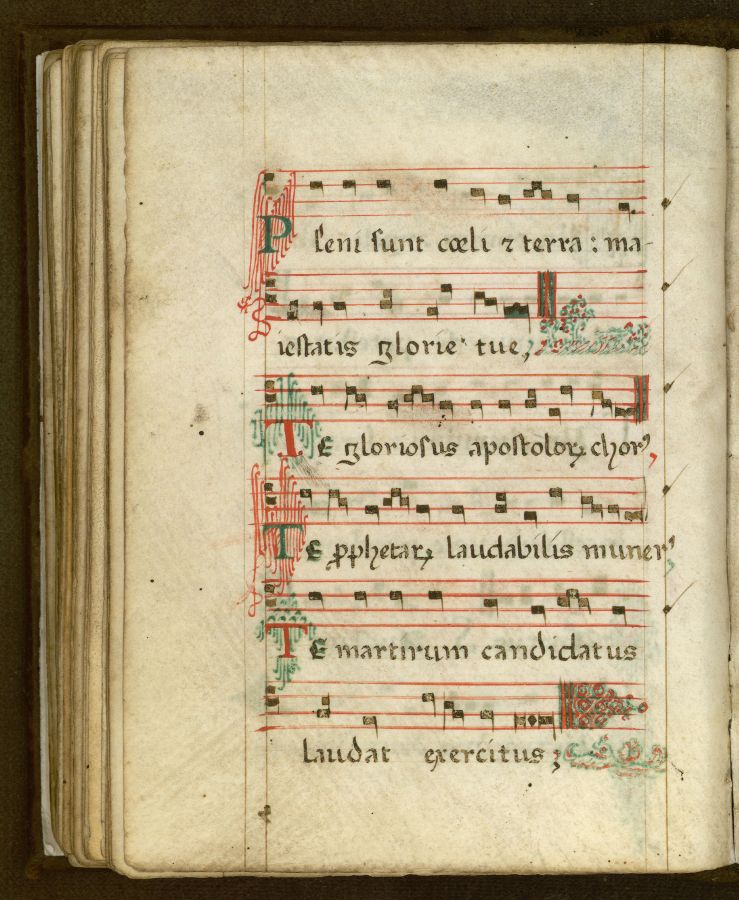 Pleni sunt cœli ⁊ terra : ma-
iestatis glorie tue,
TE gloriosus apostoloꝝ chorꝰ,
TE ꝓphetaꝝ laudabilis numerꝰ,
TE martirum candidatus
laudat exercitus;